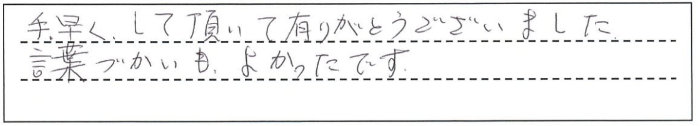 手早く、して頂いて有りがとうございました。
言葉づかいも、よかったです。